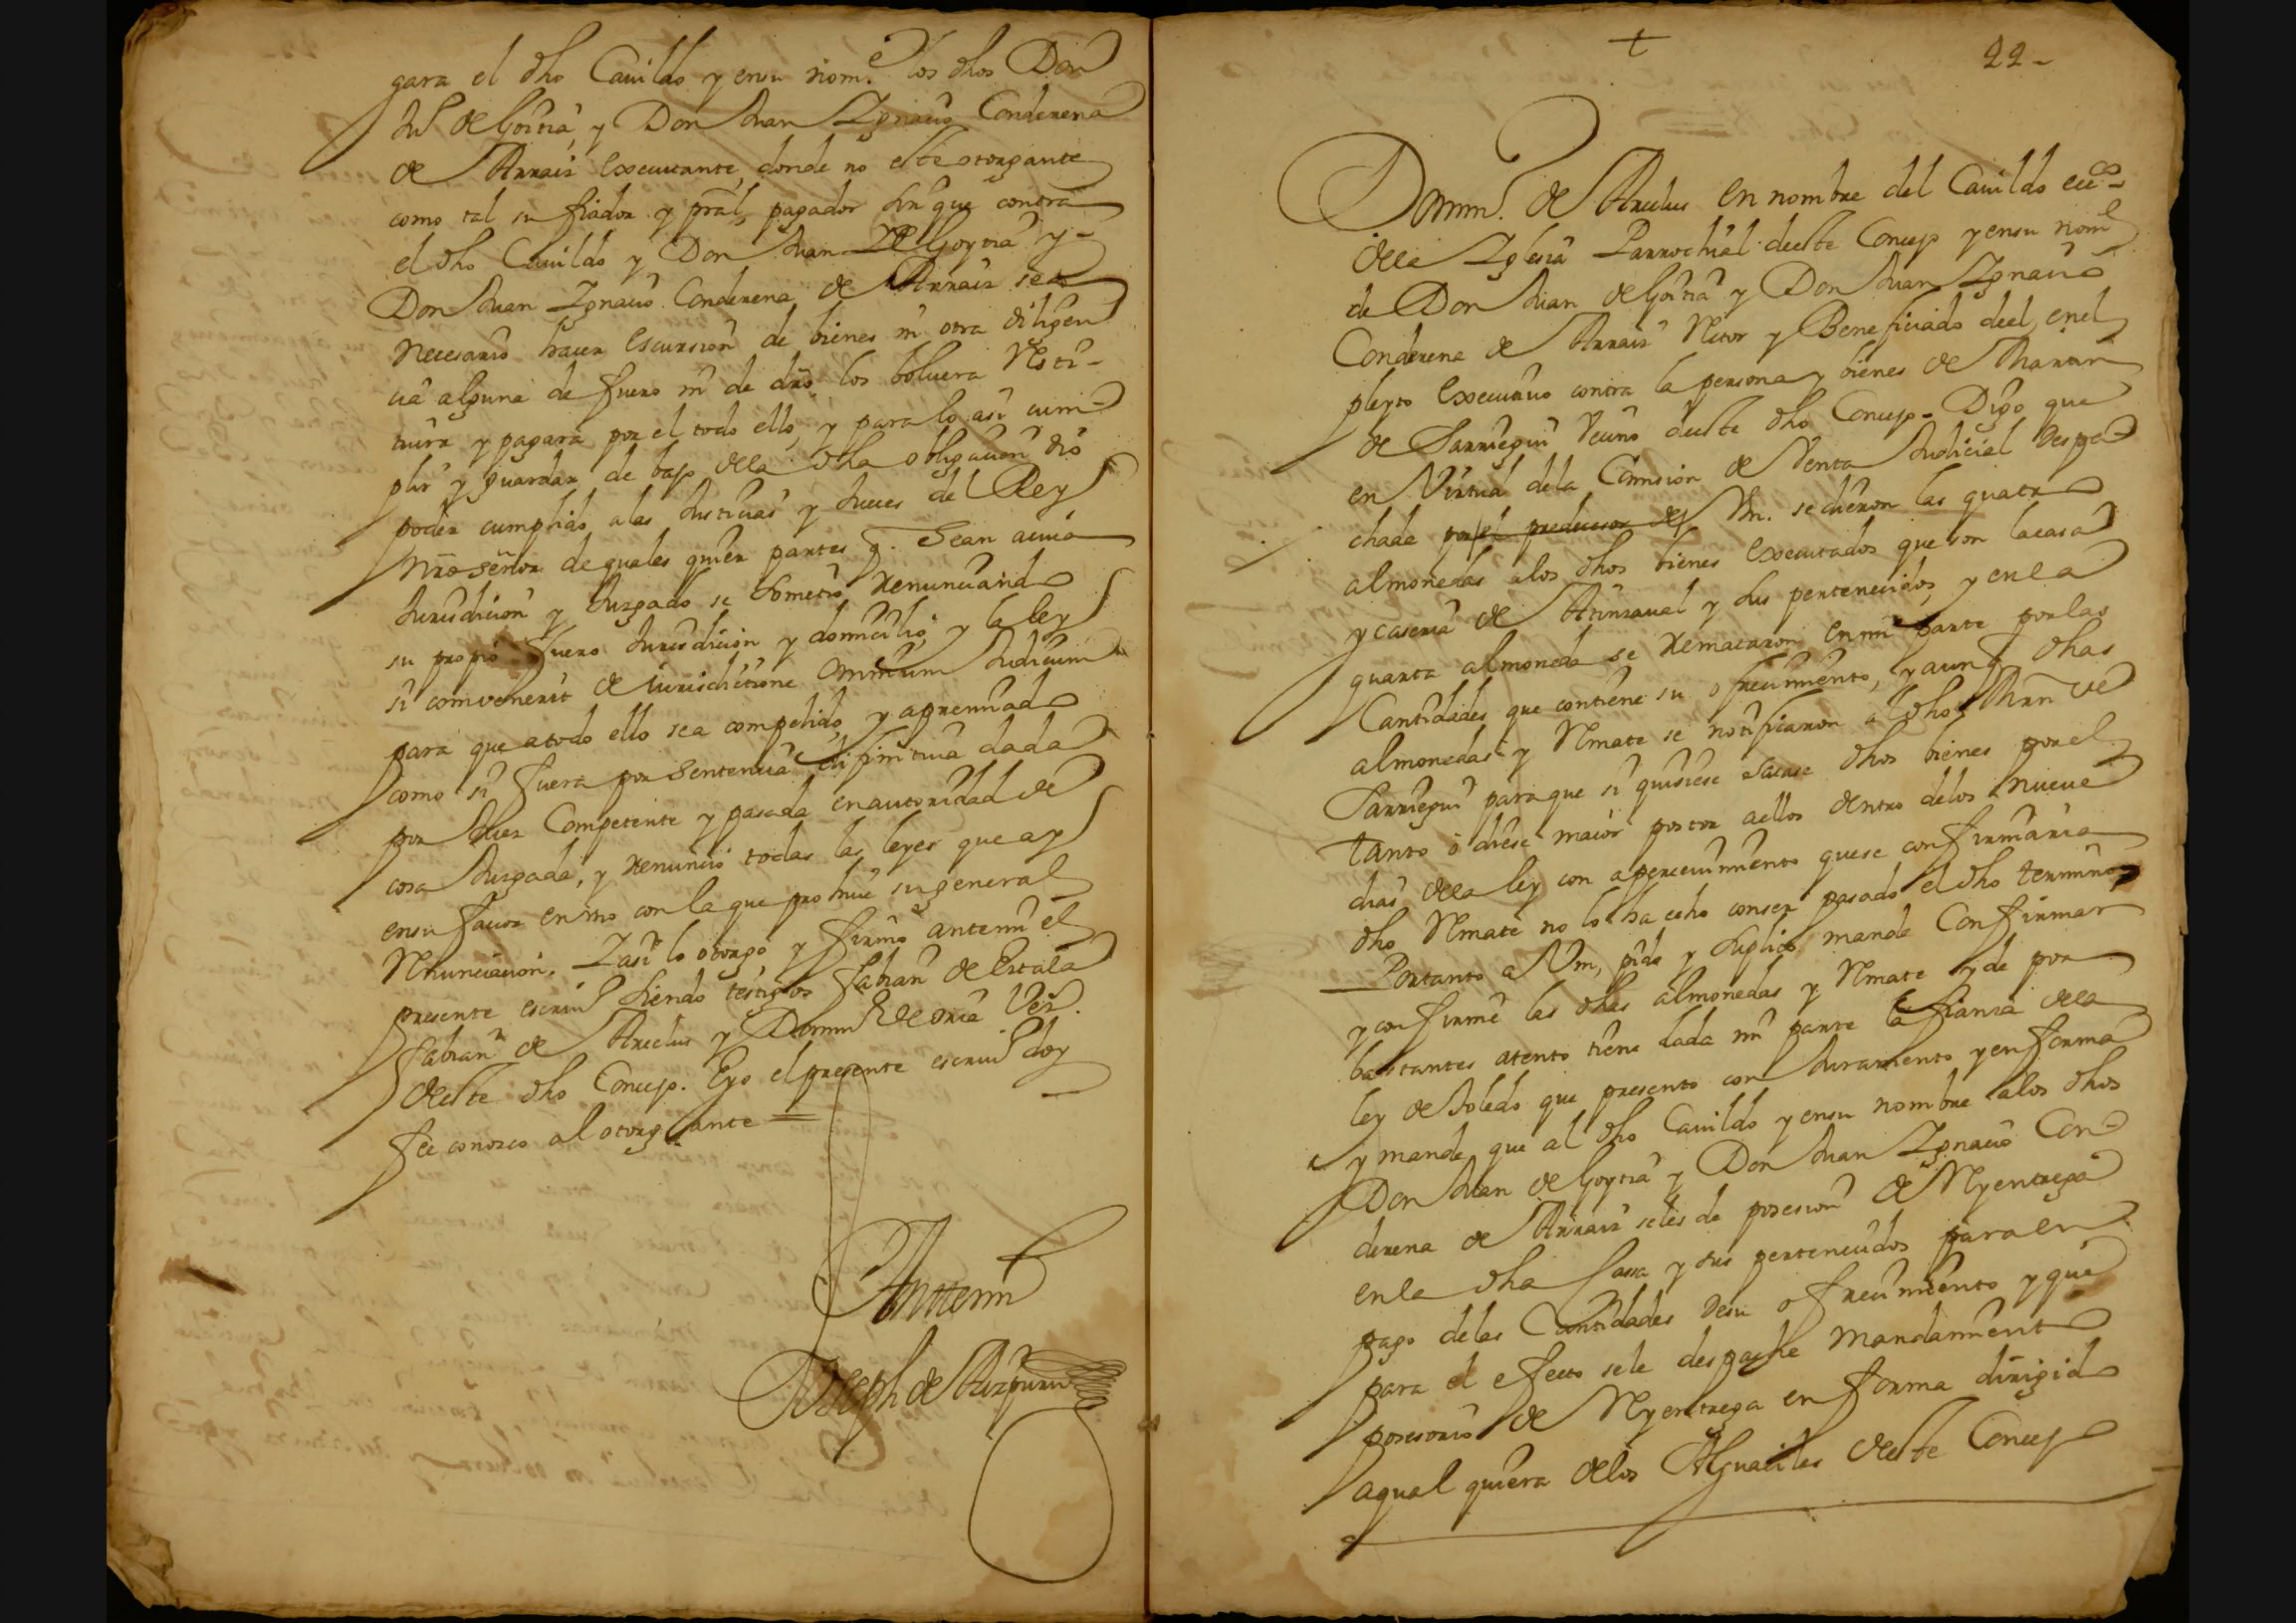 gara el dho Cauildo y ensu nom.e los dhos Don
Ju.o de Goitia, y Don Juan Ygnacio Conderena
de Arraiz executante, donde no este otorgante
como tal su fiador y pral, pagador sin que contra
el dho Cauildo y Don Juan de Goytia y
Don Juan Ygnacio Conderena de Arraiz sea
necesario hacer escursion de bienes ni otra diligen
cia alguna de fuero ni de dro, los boluera resti-
tuira y pagara por el todo ello, y para lo asi cum
plir y guardar de bajo della dha obligacion dio
poder cumplido alas Justicias y Jueces del Rey
nro señor de quales quier partes q. Sean acuia
Jurisdicion y Juzgado se sometio renunciando
su propio fuero Jurisdicion y domicilio y la ley
si combenerit de iurisditione omnium Judicum
para que atodo ello sea compelido y apremiado
como si fuera por Sentencia difinitiua dada
por Juez Competente y pasada enautoridad de
cosa Juzgada, y renuncio todas las leyes que ay
ensu fauor enuno con la que prohiue su general
renunciacion. Y asi lo otorgo y firmo antemi el
presente escriu.o siendo testigos fabian de Estala
fabian de Areilus y Domin.o de Oria Vez.s
deste dho Concejo. Eyo el presente escriu.o doy
fee conozco al otorgante =
Antemi
Joseph de Aizpuru
+
22-
Domin.o de Areilus en nombre del Cauildo ecc.co
della Yglesia Parrochial deeste Concejo y ensu nom.e
de Don Juan de Goitia y Don Juan Ygnacio
Conderena de Arraiz Retor y Beneficiado deel, enel
pleyto executiuo contra la persona y bienes de Martin
de Sarriegui Vecino deeste dho Concejo = Digo que
en Virtud dela Comision de Venta Judicial despa
chada por el predecesor de Vm. se dieron las quatro
almonedas alos dhos bienes executados que son lacasa
y caseria de Arinzaual y sus pertenecidos, y enla
quarta almoneda se remataron enmi parte porlas
Cantidades que contiene su ofrecimiento, y aunq dhas
almonedas y remate se notificaron al dho Mrn de
Sarriegui para que si quisiese sacase dhos bienes porel
tanto o diese maior postor aellos dentro delos nueue
dias dela ley con apercuimiento quese confirmaria
dho remate no lo ha echo conser pasado el dho termino
Portanto a Vm, pido y suplico mande Confirmar
y confirme las dhas almonedas y remate y de por
bastantes atento tiene dada mi parte la fianza dela
ley de Toledo que presento con Juramento y en forma
y mande que al dho Cauildo y ensu nombre alos dhos
Don Juan de Goytia y Don Juan Ygnacio Con
derena de Arraiz seles de posesion Real y entrega
enla dha Cassa y sus pertenecidos para en
pago delas Cantidades desu ofrecimiento y que
para el efecto sele despache mandamiento
posesorio de Real y entrega en forma dirigido
aqual quiera delos Alguaciles deeste Concejo